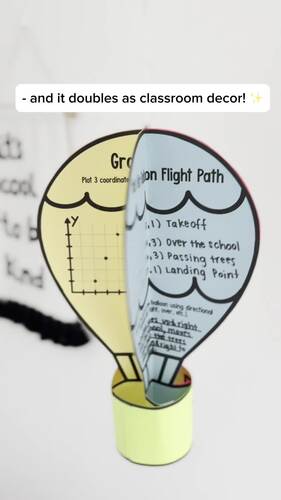 - and it doubles as classroom decor! ✨
cool
to b
kind
Gr
Plot 3 coordinate
on Flight Path
y
,1) Takeoff
,3) Over the school
,3) Passing trees
,1) Landing Point
balloon using directional
right, over, etc.)
up & right
the trees